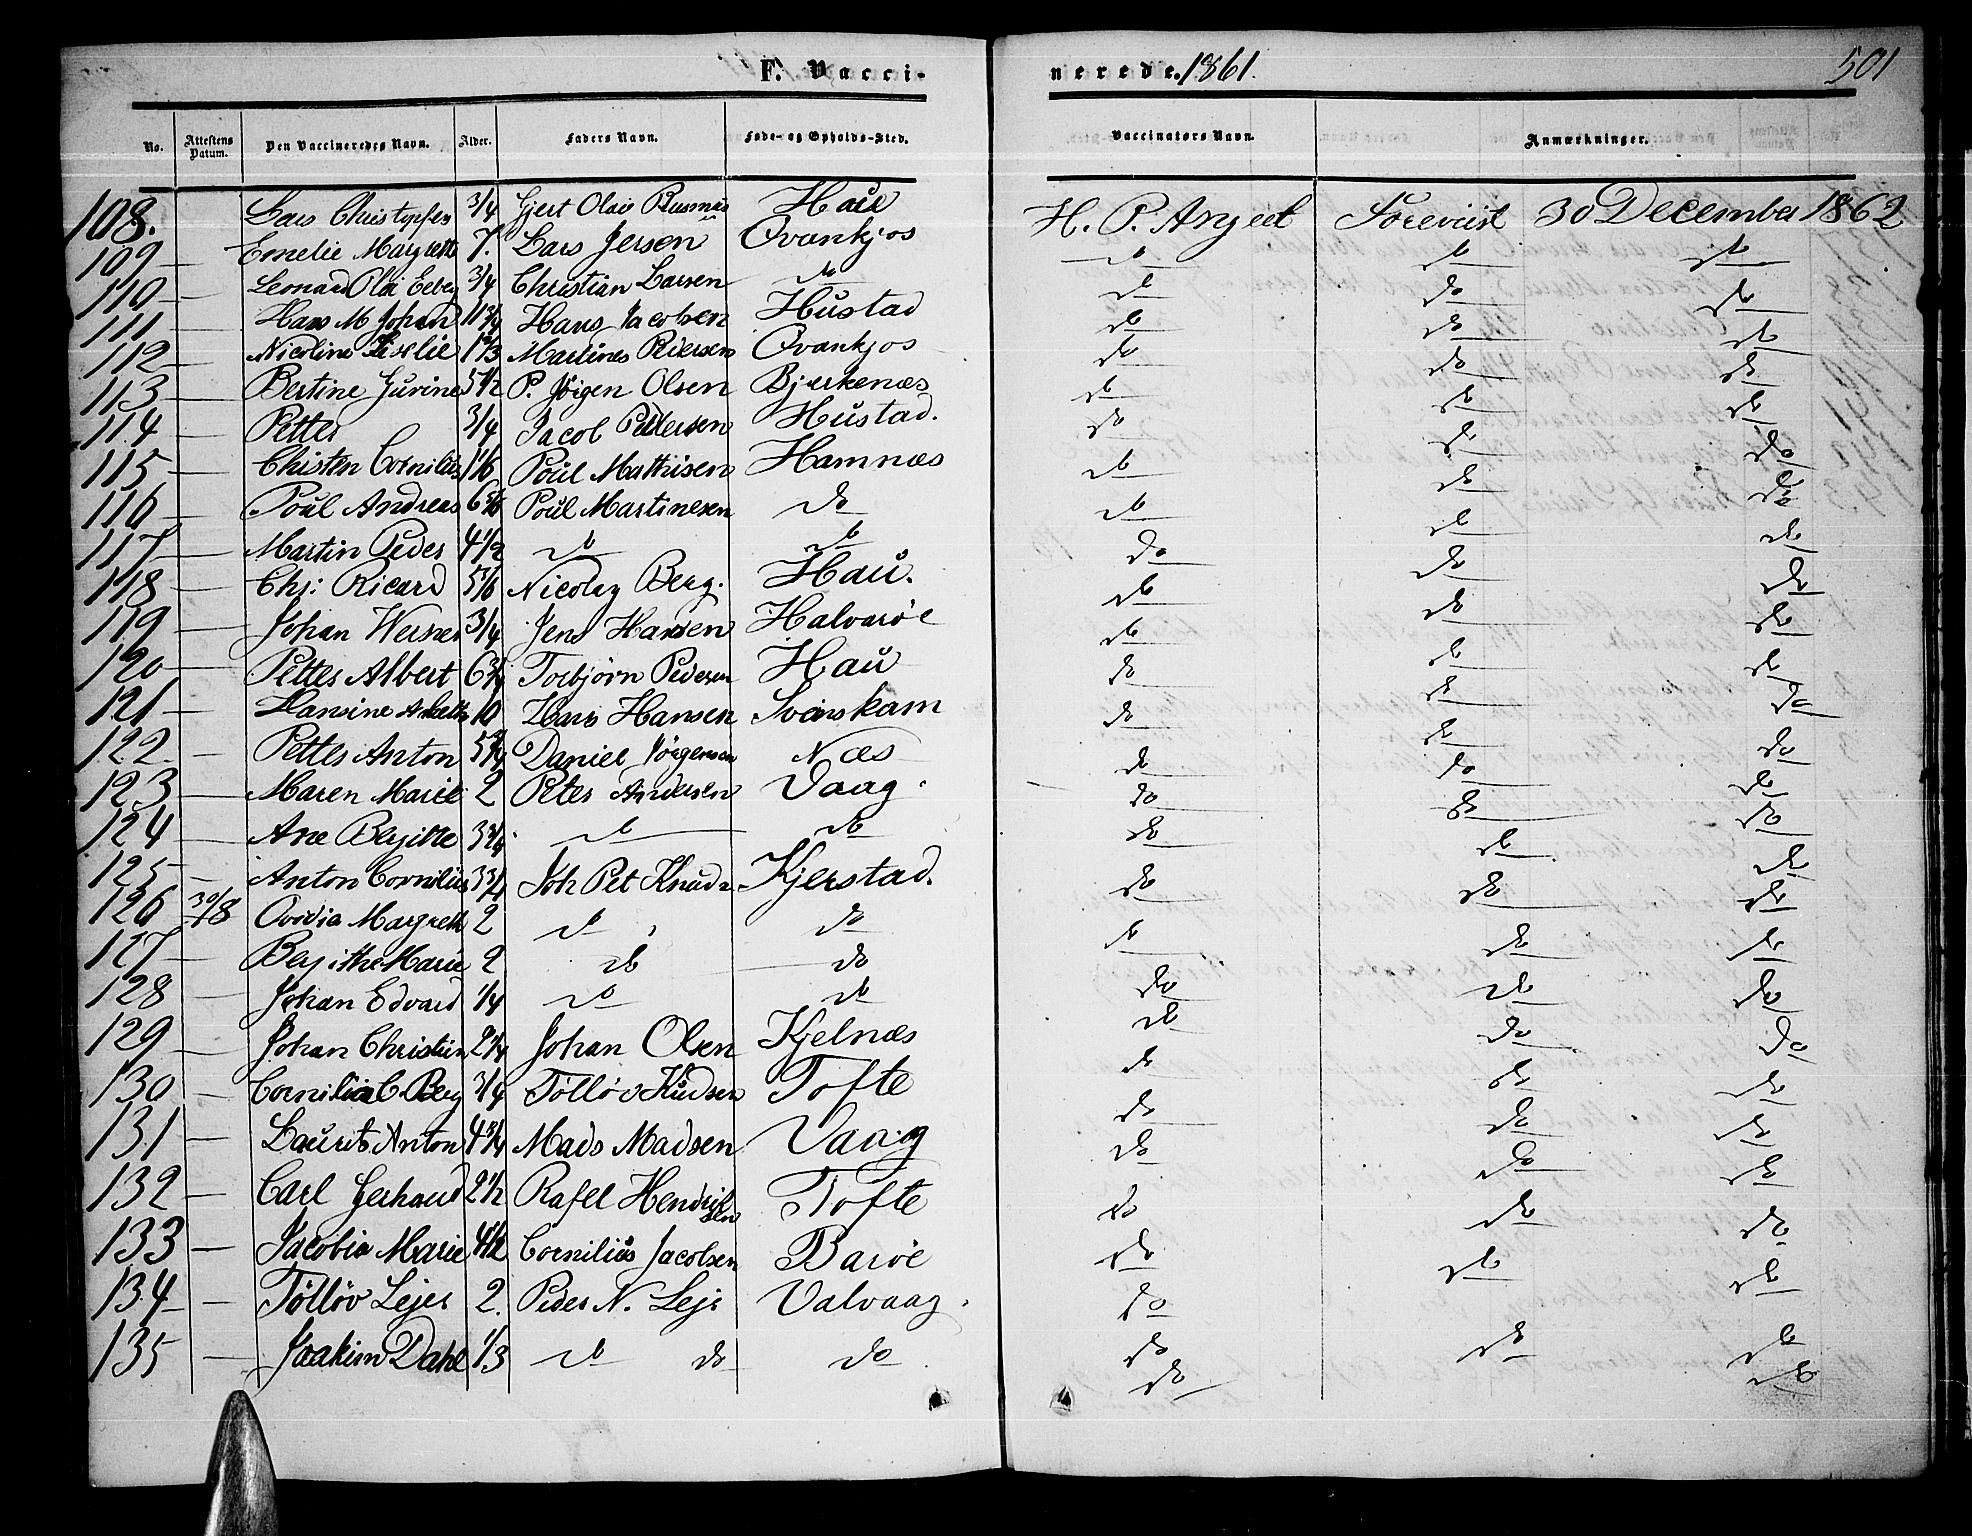 F. Vacci-
nerede. 1861.
501
No. Attestens Datum. Den Vaccineredes Navn. Alder. Faders Navn. Føde- og Opholds-Sted. Vaccinators Navn. Anmærkninger.
108. Lars Christopfer 3/4 Gjert Olai Rasmus Hau H. P. Angeel Forevist 30 December 1862
109 — Emelie Margrethe 7. Lars Jersen Qvankjos do do do
110 — Leonard Olai 3/4 Christian Larsen do do do do
111 — Hans M Johan 11 3/4 Hans Jacobsen Hustad do do do
112 — Nicoline Martines Pedersen Qvankjos do do do
113 — Bertine Jurine 5 1/2 P. Jörgen Olsen Bjerkenæs do do do
114 — Petter 3/4 Jacob Pedersen Hustad. do do do
115 — Christen Cornilius 1/6 Poul Mathisen Hamnæs do do do
116 — Poul Andreas Poul Martinesen do do do do
117 — Martin Peder 4 1/2 do do do do do
118 — Chr: Ricard 5/6 Nicolay Berg. Hau. do do do
119 — Johan Werner 3/4 Jens Hansen Halvarøe do do do
120 — Petter Albert 6 3/4 Torbjørn Pedersen Hau do do do
121 — Hansine 10 Hans Hansen Svenskam do do do
122. — Petter Anton 5 3/4 Daniel Jörgensen Næs do do do
123 — Maren Marie 2 Peter Andersen Vaag. do do do
124 — Ane Bergitte 3 3/4 do do do do do
125 — Anton Cornilius 3 3/4 Joh Pet Knuds Kjerstad. do do do
126 30/8 Ovidia Margreth 2 do do do do do
127 — Bergithe Marie 2 do do do do do
128 — Johan Edvard 1/4 do do do do do
129 — Johan Christian 2 1/4 Johan Olsen Kjelnæs do do do
130 — Cornilia C. Berg 3/4 Tölløv Knudsen Tofte do do do
131 — Laurits Anton 4 3/4 Mads Madsen Vaag do do do
132 — Carl Gerhard 2 1/2 Rafel Hendriksen Tofte do do do
133 — Jacobia Marie 4 1/2 Cornilius Jacobsen Barøe do do do
134 — Tölløv Lejer 2. Peder N. Leje Valvaag. do do do
135 — Joakim Dahl 1/3 do do do do do do
do do